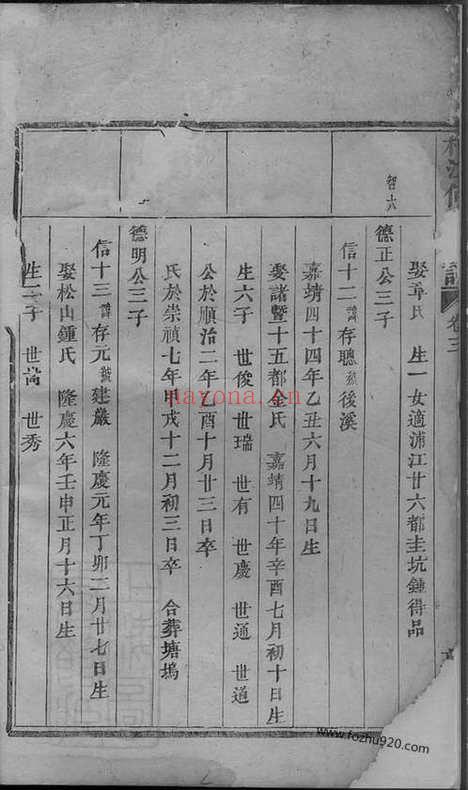 譜
卷三
智六
娶章氏 生一女適浦江廿六都圭坑鍾得品
德正公三子
信十二 諱 存聰 號 後溪
嘉靖四十四年乙丑六月十九日生
娶諸暨十五都金氏 嘉靖四十年辛酉七月初十日生
生六子 世俊 世瑞 世有 世慶 世通 世道
公於順治二年乙酉十月廿三日卒
氏於崇禎七年甲戌十二月初三日卒 合葬塘塢
德明公三子
信十三 諱 存元 號 建嚴 隆慶元年丁卯二月廿七日生
娶松山鍾氏 隆慶六年壬申正月十六日生
生二子 世嵩 世秀
nayona.cn
www.fozhu920.com